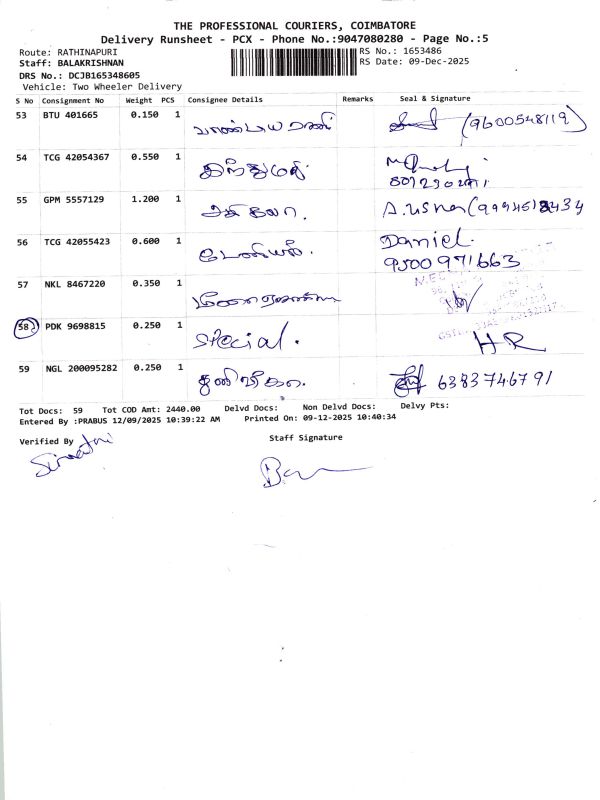 THE PROFESSIONAL COURIERS, COIMBATORE
Delivery Runsheet - PCX - Phone No.:9047080280 - Page No.:5
Route: RATHINAPURI RS No.: 1653486
Staff: BALAKRISHNAN RS Date: 09-Dec-2025
DRS No.: DCJB165348605
Vehicle: Two Wheeler Delivery
S No Consignment No Weight PCS Consignee Details Remarks Seal & Signature
53 BTU 401665 0.150 1 (9600548119)
54 TCG 42054367 0.550 1 இந்துமதி
55 GPM 5557129 1.200 1
56 TCG 42055423 0.600 1 டேனியல். Daniel.
9500971663
57 NKL 8467220 0.350 1
58 PDK 9698815 0.250 1 Special. HR
59 NGL 200095282 0.250 1 6383746791
Tot Docs: 59 Tot COD Amt: 2440.00 Delvd Docs: Non Delvd Docs: Delvy Pts:
Entered By :PRABUS 12/09/2025 10:39:22 AM Printed On: 09-12-2025 10:40:34
Verified By Staff Signature